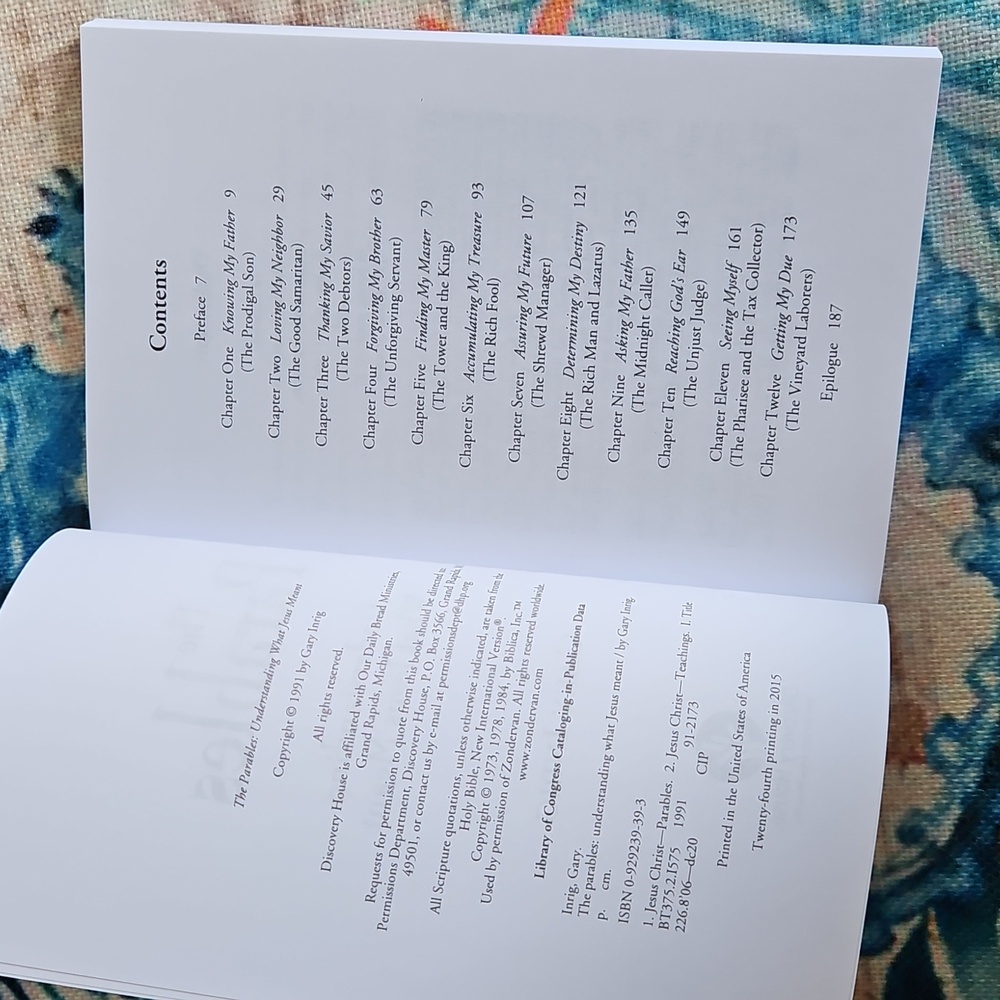 The Parables: Understanding What Jesus Meant
Copyright © 1991 by Gary Inrig
All rights reserved.
Discovery House is affiliated with Our Daily Bread Ministries,
Grand Rapids, Michigan.
Requests for permission to quote from this book should be directed to
Permissions Department, Discovery House, P.O. Box 3566, Grand Rapids,
49501, or contact us by e-mail at permissionsdept@dhp.org
All Scripture quotations, unless otherwise indicated, are taken from the
Holy Bible, New International Version®
Copyright © 1973, 1978, 1984, by Biblica, Inc.™
Used by permission of Zondervan. All rights reserved worldwide.
www.zondervan.com
Library of Congress Cataloging-in-Publication Data
Inrig, Gary.
The parables: understanding what Jesus meant / by Gary Inrig
p. cm.
ISBN 0-929239-39-3
1. Jesus Christ—Parables. 2. Jesus Christ—Teachings. I. Title
BT375.2.I575 1991 91-2173
226.8'06—dc20 CIP
Printed in the United States of America
Twenty-fourth printing in 2015
Contents
Preface 7
Chapter One Knowing My Father 9
(The Prodigal Son)
Chapter Two Loving My Neighbor 29
(The Good Samaritan)
Chapter Three Thanking My Savior 45
(The Two Debtors)
Chapter Four Forgiving My Brother 63
(The Unforgiving Servant)
Chapter Five Finding My Master 79
(The Tower and the King)
Chapter Six Accumulating My Treasure 93
(The Rich Fool)
Chapter Seven Assuring My Future 107
(The Shrewd Manager)
Chapter Eight Determining My Destiny 121
(The Rich Man and Lazarus)
Chapter Nine Asking My Father 135
(The Midnight Caller)
Chapter Ten Reaching God's Ear 149
(The Unjust Judge)
Chapter Eleven Seeing Myself 161
(The Pharisee and the Tax Collector)
Chapter Twelve Getting My Due 173
(The Vineyard Laborers)
Epilogue 187